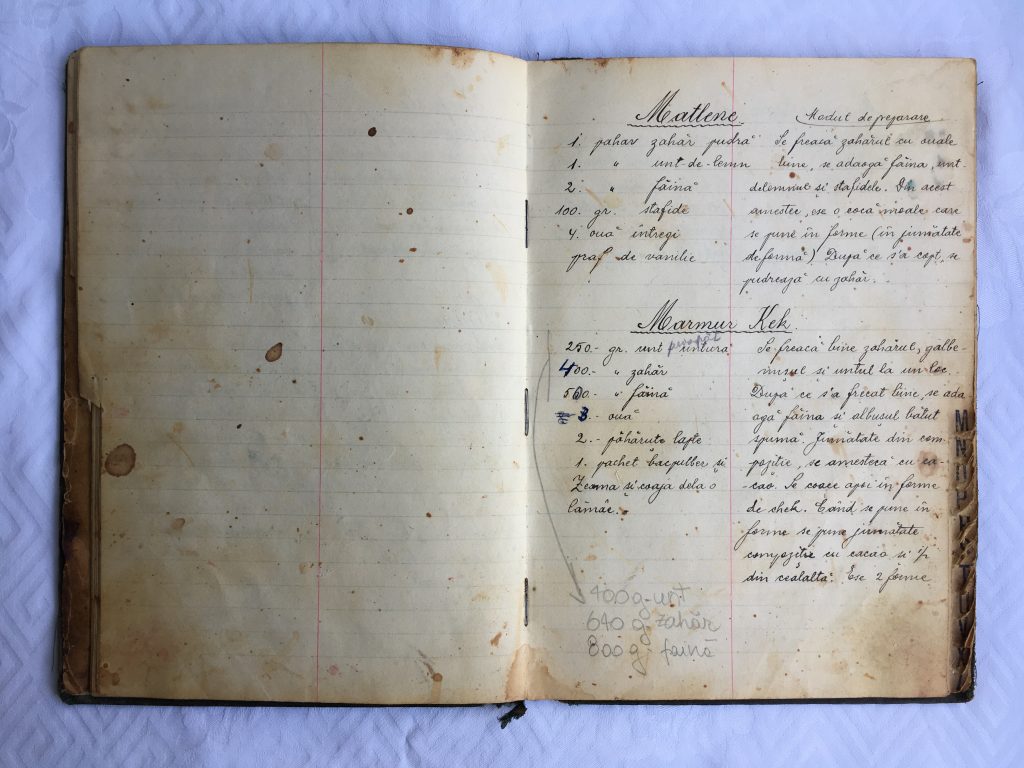 Matlene
1. pahar zahăr pudră
1. " unt-de-lemn
2. " făină
100. gr. stafide
4. ouă întregi
praf de vanilie
Modul de preparare
Se freacă zahărul cu ouale
bine, se adaogă făina, unt-
delemnul și stafidele. Din acest
amestec, ese o cocă moale care
se pune în forme (în jumătate
de formă) După ce s'a copt, se
pudrează cu zahăr.
Marmur Kek
250.- gr. unt proaspăt untură
400.- " zahăr
560.- " făină
3.- ouă
2.- păhăruțe lapte
1. pachet bacpulber și
Zeama și coaja dela o
lămâe.
Se freacă bine zahărul, gălbe-
nușul și untul la un loc.
După ce s'a frecat bine, se ada
agă făina și albușul bătut
spumă. Jumătate din com-
poziție, se amestecă cu ca-
-cao. Se coace apoi în forme
de chek. Când se pune în
forme se pune jumătate
compoziție cu cacao și 1/2
din cealaltă. Ese 2 forme
400g unt
640 g zahăr
800 g. faină
M
N
P
T
U
V